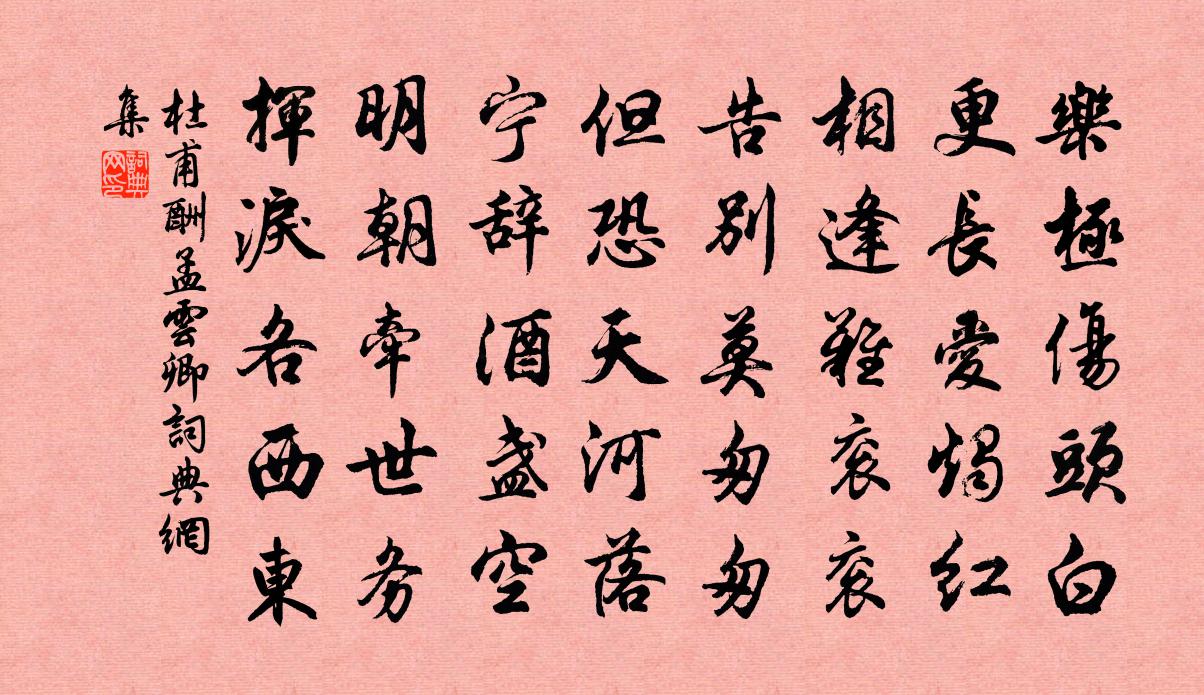 樂極傷頭白
更長愛燭紅
相逢難袞袞
告別莫匆匆
但恐天河落
宁辞酒盞空
明朝牽世务
揮淚各西東
杜甫酬孟雲卿詞典網
集
詞典網印